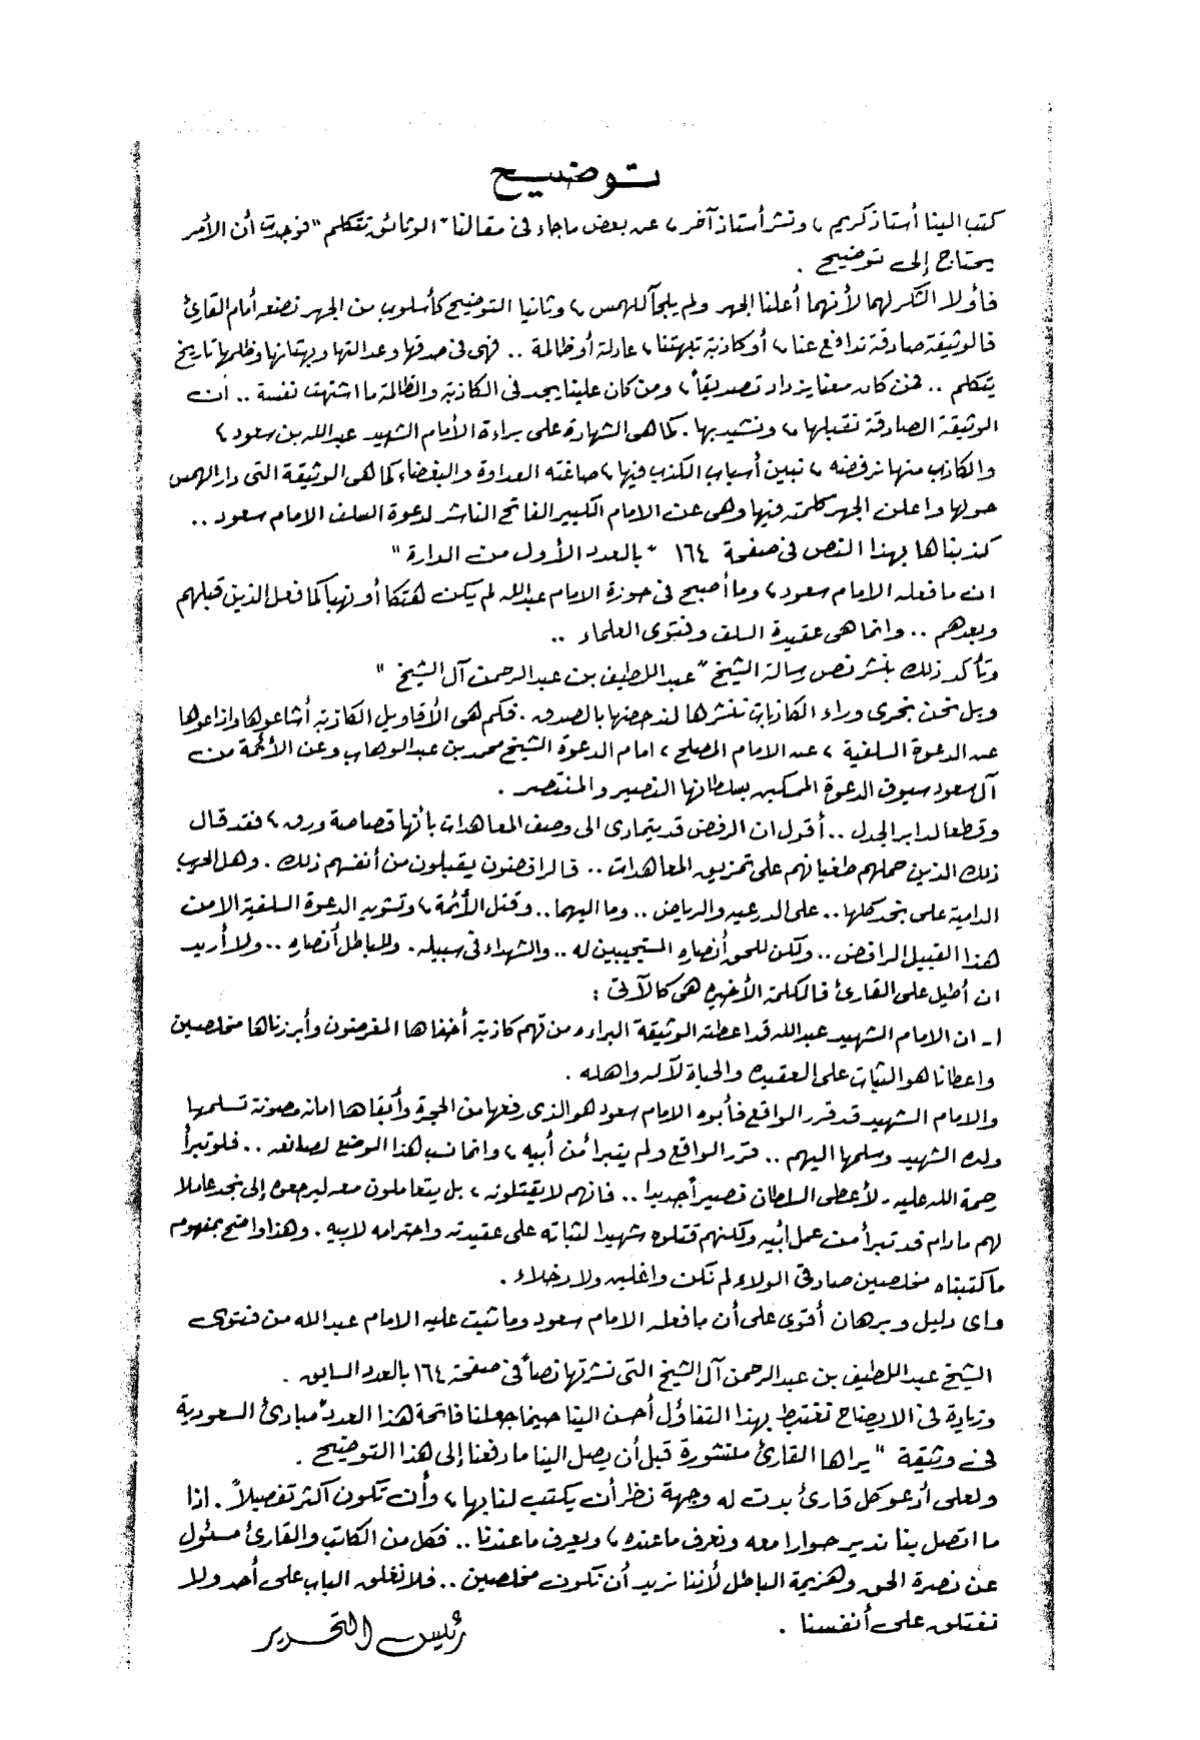 توضيح
كتب الينا أستاذ كريم ، ونشر أستاذ آخر ، عن بعض ما جاء فى مقالنا " الوثائق تتكلم " فوجدت أن الأمر
يحتاج إلى توضيح .
فأولا الشكر لهما لأنهما أعلنا الجهر ولم يلجآ للهمس ، وثانيا التوضيح كأسلوب من الجهر نضعه أمام القارئ
فالوثيقة صادقة تدافع عنا ، أو كاذبة تبهتنا ، عادلة أو ظالمة .. فهى فى صدقها وعدالتها وبهتانها وظلمها تاريخ
يتكلم .. فمن كان معنا يزداد تصديقاً ، ومن كان علينا يجد فى الكاذبة والظالمة ما اشتهت نفسة .. ان
الوثيقة الصادقة نقبلها ، ونشيد بها . كما هى الشهادة على براءة الأمام الشهيد عبدالله بن سعود ،
والكاذب منها نرفضه ، نبين أسباب الكذب فيها ، صاغته العداوة والبغضاء كما هى الوثيقة التى دار الهمس
حولها واعلن الجهر كلمته فيها وهى عن الامام الكبير الفاتح الناشر لدعوة السلف الامام سعود ..
كذبناها بهذا النص فى صفحة ١٦٤ " بالعدد الأول من الدارة "
ان ما فعله الامام سعود ، وما أصبح فى حوزة الامام عبدالله لم يكن هتكا أو نهبا كما فعل الذين قبلهم
وبعدهم .. وانما هى عقيدة السلف وفتوى العلماء ..
وتأكد ذلك بنشر نص رسالة الشيخ " عبد اللطيف بن عبد الرحمن آل الشيخ "
وبل نحن نجرى وراء الكاذبات ننشرها لندحضها بالصدق . فكم هى الأقاويل الكاذبة أشاعوها واذاعوها
عن الدعوة السلفية ، عن الامام المصلح ، امام الدعوة الشيخ محمد بن عبد الوهاب وعن الأئمة من
آل سعود سيوف الدعوة الممكنين بسلطانها النصير والمنتصر .
وقطعا لدابر الجدل .. أقول ان الرفض قد يتمادى الى وصف المعاهدات بأنها قصاصة ورق ، فقد قال
ذلك الذين حملهم طغيانهم على تمزيق المعاهدات .. فالرافضون يقبلون من أنفسهم ذلك . وهل الحرب
الدامية على نجد كلها .. على الدرعيه والرياض .. وما اليهما .. وقتل الأئمة ، وتشويه الدعوة السلفية الا من
هذا القبيل الرافض .. ولكن للحق أنصاره المستجيبين له .. والشهداء فى سبيله . وللباطل أنصاره .. ولا أريد
ان أطيل على القارئ فالكلمة الأخيره هى كالآتى :
١ـ ان الامام الشهيد عبدالله قد اعطته الوثيقة البراءه من تهم كاذبة أخفاها المغرضون وأبرزناها مخلصين
واعطانا هو الثبات على العقيده والحياة لآله واهله .
والامام الشهيد قد قرر الواقع فأبوه الامام سعود هو الذى رفعها من الحجرة وأبقاها امانه مصونة تسلمها
ولده الشهيد وسلمها اليهم .. قرر الواقع ولم يتبرأ من أبيه ، وانما نسب هذا الوضع لصانعه .. فلو تبرأ
رحمة الله عليه - لأعطى السلطان قصيراً جديدا .. فانهم لا يقتلونه ، بل يتعاملون معه ليرجعوه إلى نجد عاملا
لهم مادام قد تبرأ من عمل أبيه ولكنهم قتلوه شهيدا لثباته على عقيدته واحترامه لابيه . وهذا واضح بمفهوم
ما كتبناه مخلصين صادقى الولاء لم نكن واغلين ولا دخلاء .
واى دليل وبرهان أقوى على أن ما فعله الامام سعود وما ثبت عليه الامام عبدالله من فتوى
الشيخ عبد اللطيف بن عبد الرحمن آل الشيخ التى نشرتها نصاً فى صفحة ١٦٤ بالعدد السابق .
وزيادة فى الايضاح نغتبط بهذا التفاؤل أحسن الينا حينما جعلنا فاتحة هذا العدد " مبادئ السعودية
فى وثيقة " يراها القارئ منتشورة قبل أن يصل الينا ما دفعنا إلى هذا التوضيح .
ولعلى أدعو كل قارئ بدت له وجهة نظر أن يكتب لنا بها ، وأن تكون أكثر تفصيلاً . اذا
ما اتصل بنا ندير حوارا معه ونعرف ما عنده ، ويعرف ما عندنا .. فكل من الكاتب والقارئ مسئول
عن نصرة الحق وهزيمة الباطل لأننا نريد أن نكون مخلصين .. فلا نغلق الباب على أحد ولا
نغتلق على أنفسنا .
رئيس التحرير